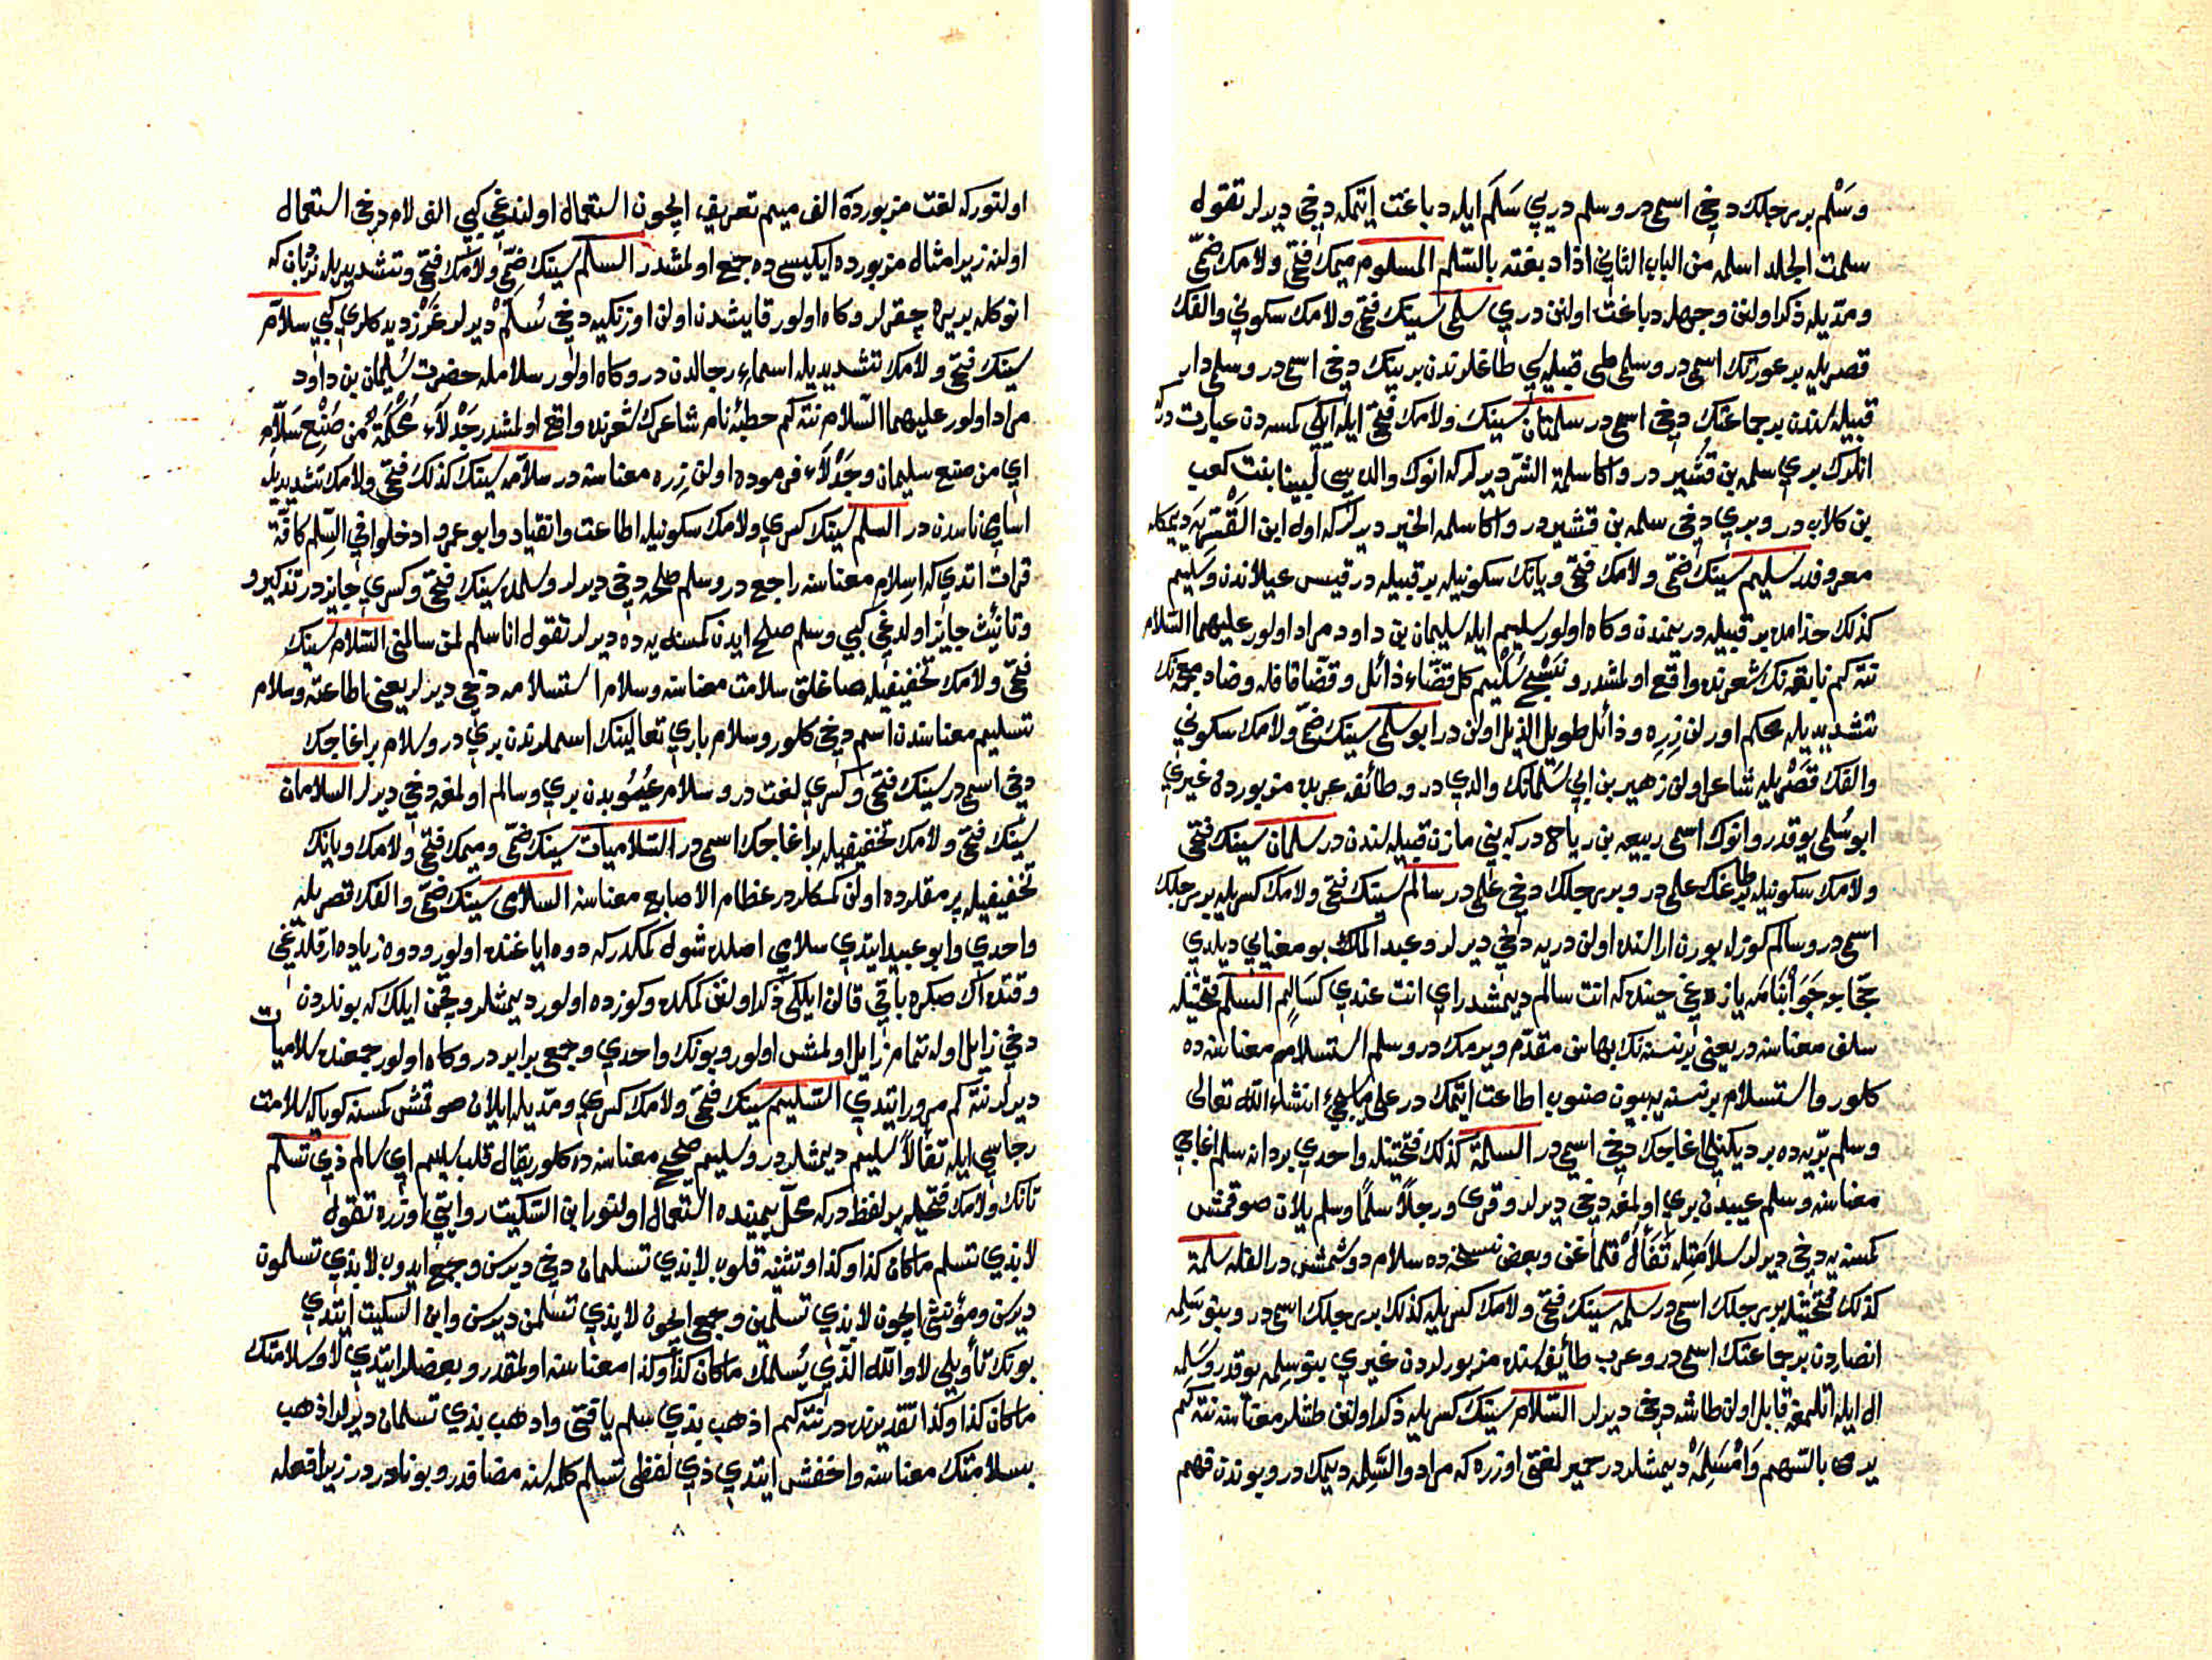 وسَلْم بر رجلك دخي اسمي در وسلم دري سَلَم ايله دباغت ايتمكه دخي ديرلر تقول
سلمت الجلد اسلمه من الباب الثاني اذا دبغته بالسّلم المسلوم ميمك فتحي ولامك ضمّي
ومدّيله ذكر اولنن وجهله دباغت اولنن دري سلمى سينك فتحي ولامك سكوني والفك
قصريله بر عورتك اسمي در وسلمى طي قبيله سي طاغلرندن بر بينك دخي اسمي در وسلمى دار
قبيله سندن بر جماعتك دخي اسمي در سلمتان سينك ولامك فتحي ايله ايكي كمسه دن عبارت در كه
انلرك بري سلمه بن قشير در واكا سلمة الشرّ ديرلر كه انوك والده سي لبينا بنت كعب
بن كلاب در وبري دخي سلمه بن قشير در واكا سلمه الخير ديرلر كه اول ابن القشريه ديمكله
معروفدر سليم سينك ضمّي ولامك فتحي ويانك سكونيله بر قبيله در قيس عيلاندن وسليم
كذلك جذامده بر قبيله در يمندن وكاه اولور سليم ايله سليمان بن داود مراد اولور عليهما السّلام
نته كم نابغه نك شعرنده واقع اولمشدر ونسْج سُلَيم كل قضّاء ذائل وقضّا قافله وضاد معجمه نك
تشديديله محكم اورلن زِرِه وذائل طويل الذيل اولن در ابو سلمى سينك ضمّي ولامك سكوني
والفك قصْريله شاعر اولن زهير بن ابي سَلمانك والدي در وطائفه عربده مزبوردن غيري
ابو سُلمى يوقدر وانوك اسمي ربيعه بن رياح در كه بني مازن قبيله سندن در سلمان سينك فتحي
ولامك سكونيله بر طاغك علمي در وبر رجلك دخي علمي در سالم سينك فتحي ولامك كسريله بر رجلك
اسمي در وسالم كوزله بورن اراسنده اولن دريه دخي ديرلر وعبد الملك بو معنايي ديلدي
حجّاجه جَوابْنامَه يازدغي حينده كه انت سالم ديمشدر اي انت عندي كسَالِمٍ السلم فتحتيله
سلف معناسنه در يعني بر نسنه نك بهاسن مقدّم ويرمك در وسلم استسلام معناسنه ده
كلور واستسلام بر نسنه يه بيون صنوب اطاعت ايتمك در على ما يجيء انشاء الله تعالى
وسلم برّيه ده بر ديكنلي اغاجك دخي اسمي در السلمة كذلك فتحتيله واحدي بر دانه سلم اغاجي
معناسنه وسلم عيبدن بري اولمغه دخي ديرلر وقرئ ورجلاً سلمًا وسلم ييلان صوقمش
كمسنه يه دخي ديرلر سلامَتِله تَفأّلْ قلماغن وبعض نسخه ده سلام دوشمشدر القله سلمة
كذلك فتحتيله بر رجلك اسمي در سلمه سينك فتحي ولامك كسريله كذلك بر رجلك اسمي در وبنو سَلِمه
انصاردن بر جماعتك اسمي در وعرب طائفه سنده مزبورلردن غيري بنو سلمه يوقدر وسَلِمه
ال ايله اتلمغه قابل اولن طاشه دخي ديرلر السّلام سينك كسريله ذكر اولنن طاشلر معناسنه نته كم
يرمي بالسّهم وَامْسَلِمَهْ ديمشلردر حمير لغتي اوزره كه مراد والسَّلِمه ديمك در وبوندن فهم
اولنور كه لغت مزبورده الف ميم تعريف ايچون استعمال اولندغي كبي الف لام دخي استعمال
اولنه زيرا مثال مزبورده ايكيسي ده جمع اولمشدر السلم سينك ضمّي ولامك فتحي وتشديديله نردبان كه
انوكله بر يره چقرلر وكاه اولور قايشدن اولن اوزنكيه دخي سُلّم ديرلر غَرْز ديدكلري كبي سلاّم
سينك فتحي ولامك تشديديله اسماء رجالدن در وكاه اولور سلامله حضرت سُليمان بن داود
مراد اولور عليهما السّلام نته كم حطيئه نام شاعرك شعرنده واقع اولمشدر جَدْلاَء مُحْكَمَةٌ من صَنِع سَلاّم
اي من صنع سليمان وجَدْلاَء فرموده اولن زره معناسنه در سلاّمه سينك كذلك فتحي ولامك تشديديله
اسامي ناسدن در السلم سينك كسري ولامك سكونيله اطاعت وانقياد وابو عمرو ادخلوا في السِّلم كافّة
قرات اتدي كه اسلام معناسنه راجع در وسلم صلحه دخي ديرلر وسلمده سينك فتحي وكسري جايز در تذكير و
وتانيث جايز اولدغي كبي وسلم صلح ايدن كمسنه يه ده ديرلر تقول انا سلم لمن سالمني السّلام سينك
فتحي ولامك تخفيفيله صاغلق سلامت معناسنه وسلام استسلامه دخي ديرلر يعني اطاعته وسلام
تسليم معناسندن اسم دخي كلور وسلام باري تعالينك اسملرندن بري در وسلام بر اغاجك
دخي اسمي در سينك فتحي وكسري لغت در وسلام عُيُوبدن بري وسالم اولمغه دخي ديرلر السلامان
سينك فتحي ولامك تخفيفيله بر اغاجك اسمي در السّلاميات سينك ضمّي وميمك فتحي ولامك ويانك
تخفيفيله پرمقلرده اولن كمكلر در عظام الاصابع معناسنه السلامى سينك ضمّي والفك قصريله
واحدي وابو عبيد ايتدي سلامي اصلده شول كمكدر كه دوه اياغنده اولور ودوه زياده ارقلديغي
وقتده اك صكره باقي قالن ايلكي ذكر اولنن كمكده وكوزده اولور ديمشلر وچن ايلك كه بونلردن
دخي زايل اوله تمامز زايل اولمش اولور وبونك واحدي وجمعي برابر در وكاه اولور جمعنده سلاميات
ديرلر نته كم مرور ايتدي السّليم سينك فتحي ولامك كسري ومدّيله ييلان صوقمش كمسنه كويا كه سلامت
رجاسي ايله تفأّلاً سَليم ديمشلردر وسليم صَحيح معناسنه ده كلور يقال قلب سليم اي سالم ذي تسلم
تانك ولامك فتحيله بر لفظ در كه محلّ يمينده استعمال اولنور ابن السّكيت روايتي اوزره تقول
لا بذي تسلم ما كان كذا وكذا وتثنيه قلوب لا بذي تسلمان دخي ديرسن وجمع ايدوب لا بذي تسلمون
ديرسن ومؤنثي ايچون لا بذي تسلمين وجمعي ايچون لا بذي تسلمن ديرسن وابن السّكيت ايتدي
بونك تأويلي لا والله الّذي يُسلّمك ما كان كذا وكذا معناسنه اولمقدر وبعضلر ايتدي لا وسلامتك
ما كان كذا وكذا تقديرنده در نته كيم اذهب بذي تسلم يا فتى واذهب بذي تسلمان ديرلر اذهب
بسلامتك معناسنه واخفش ايتدي ذي لفظي تسلم كلمه سنه مضافدر وبو نادر در زيرا فعله